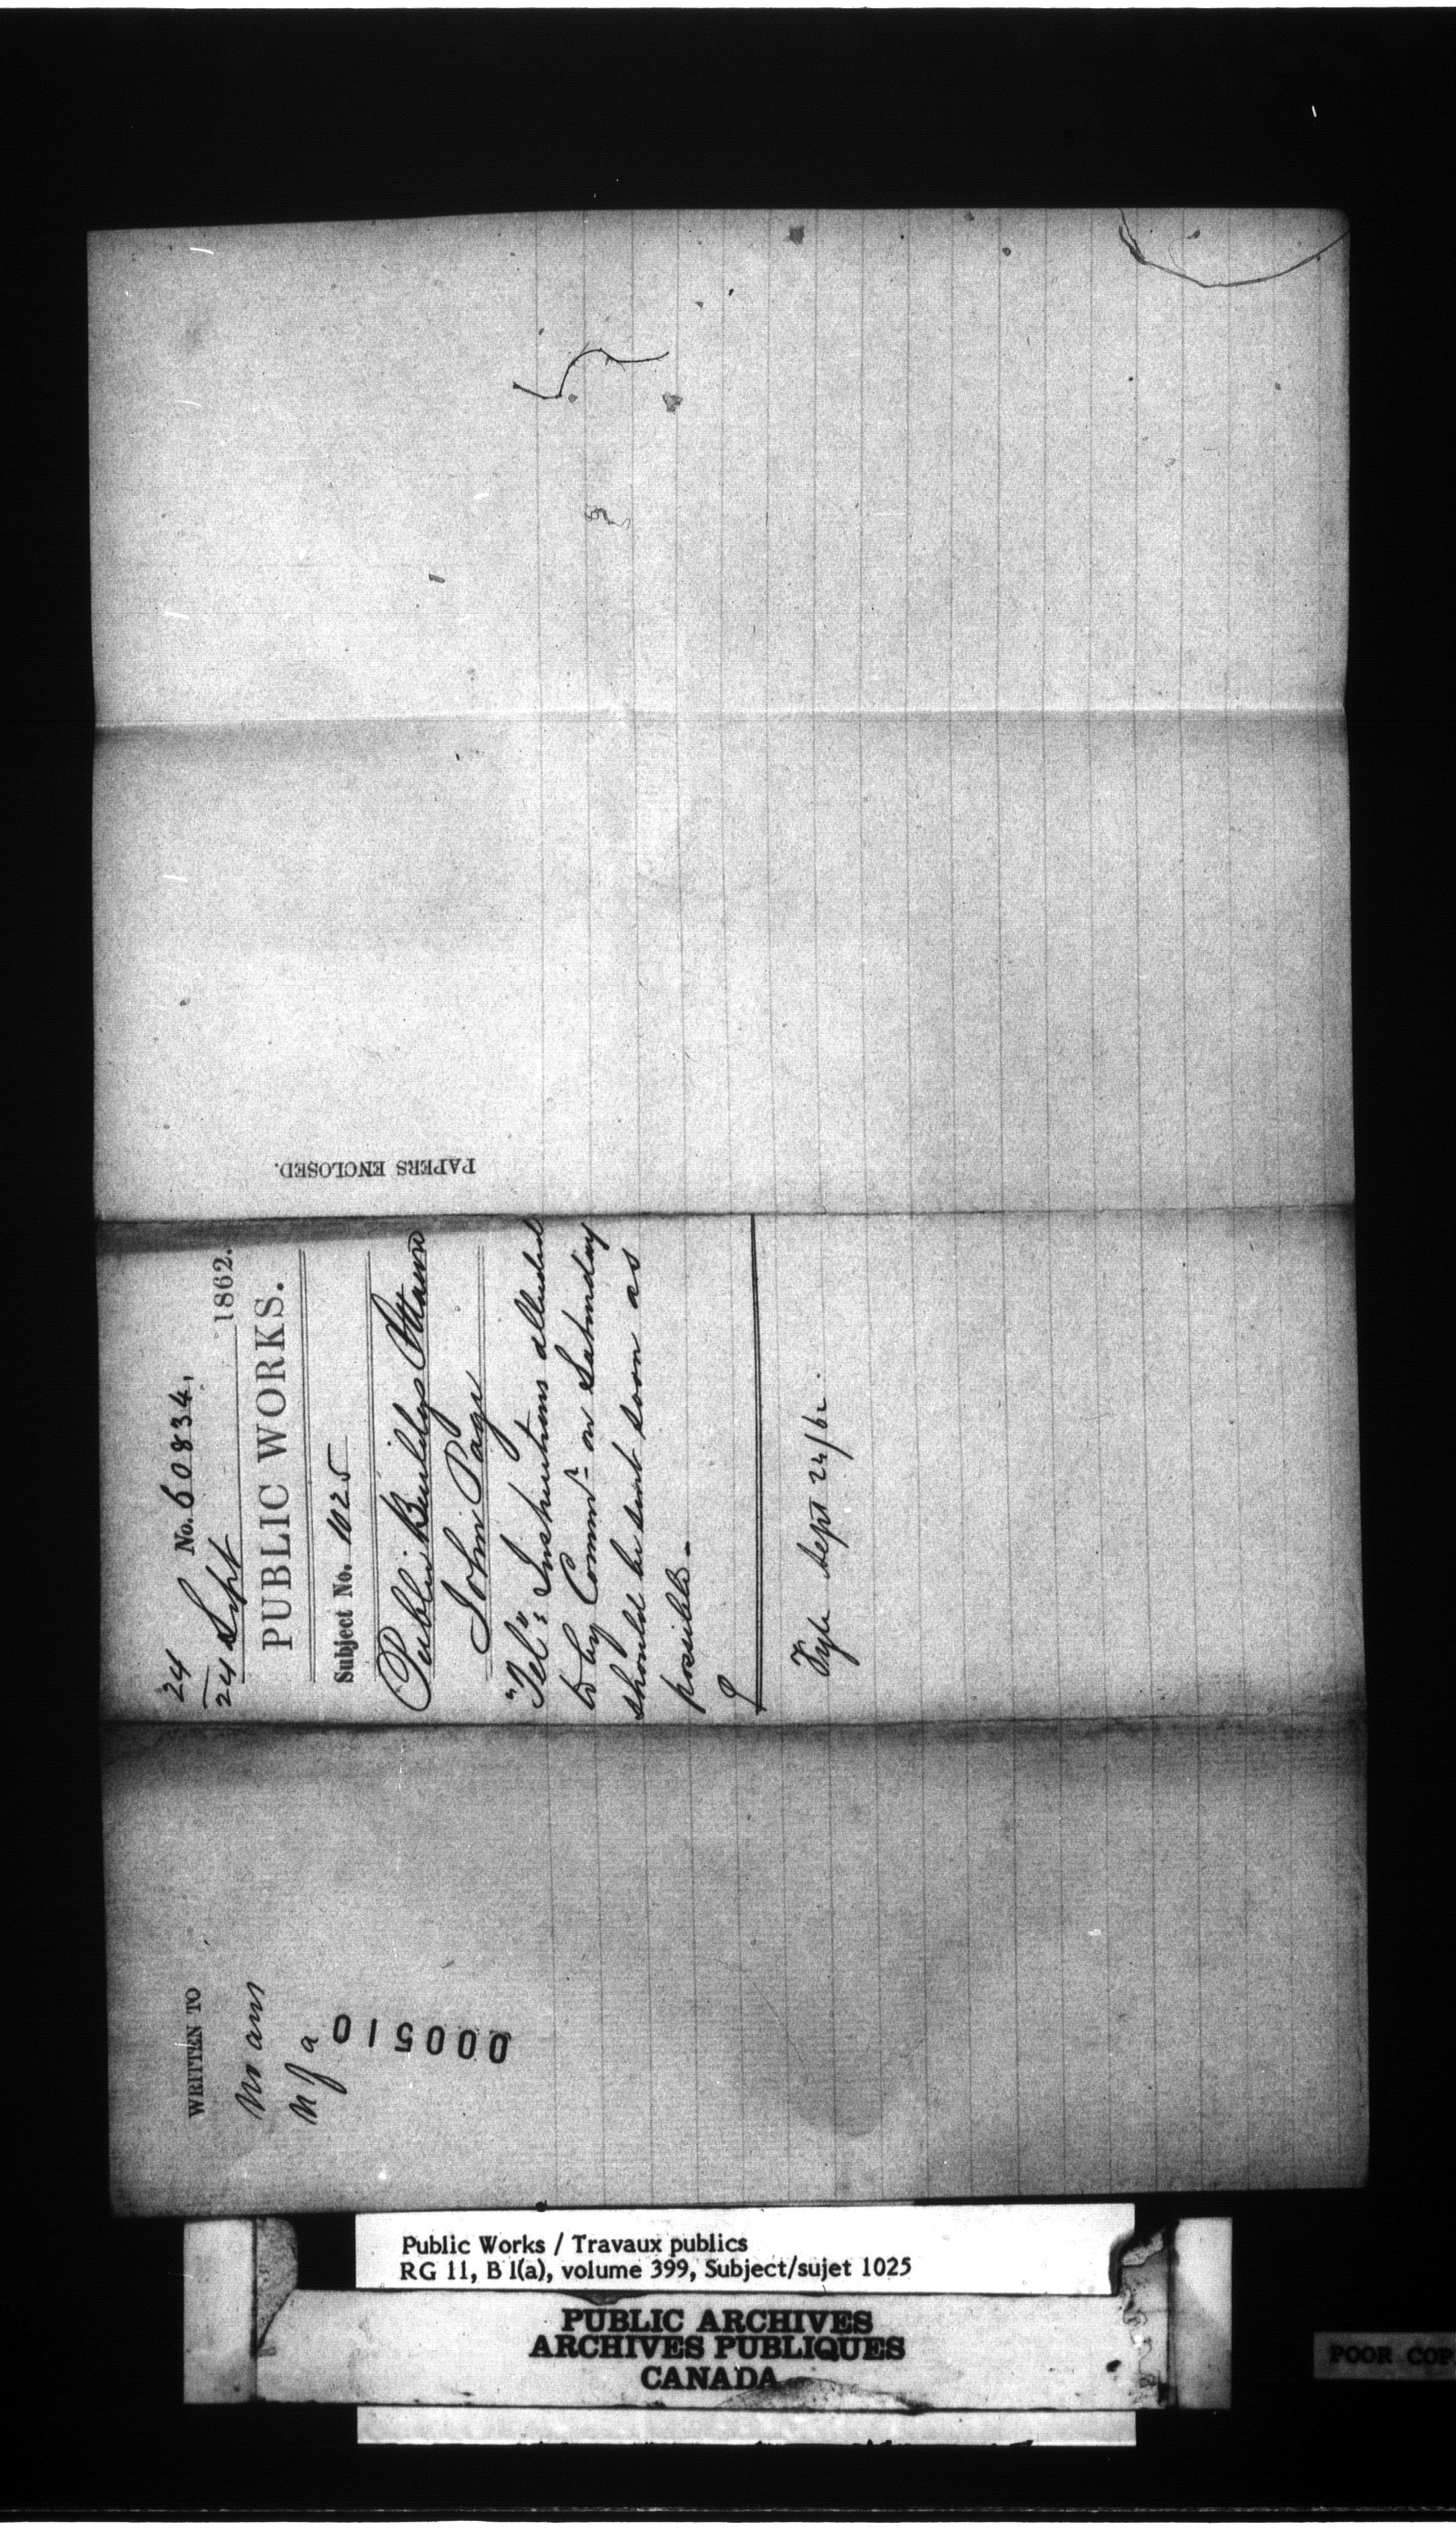 24 No. 60834,
24 Sept 1862.
PUBLIC WORKS.
Subject No. 1025
Public Buildgs Ottawa
John Page
"Tel": Instructions alluded
to by Commr on Saturday
should be sent soon as
possible -
Fyle Sept 24/62.
PAPERS ENCLOSED.
WRITTEN TO
no ans
n f a
000510
Public Works / Travaux publics
RG 11, B 1(a), volume 399, Subject/sujet 1025
PUBLIC ARCHIVES
ARCHIVES PUBLIQUES
CANADA
POOR COP